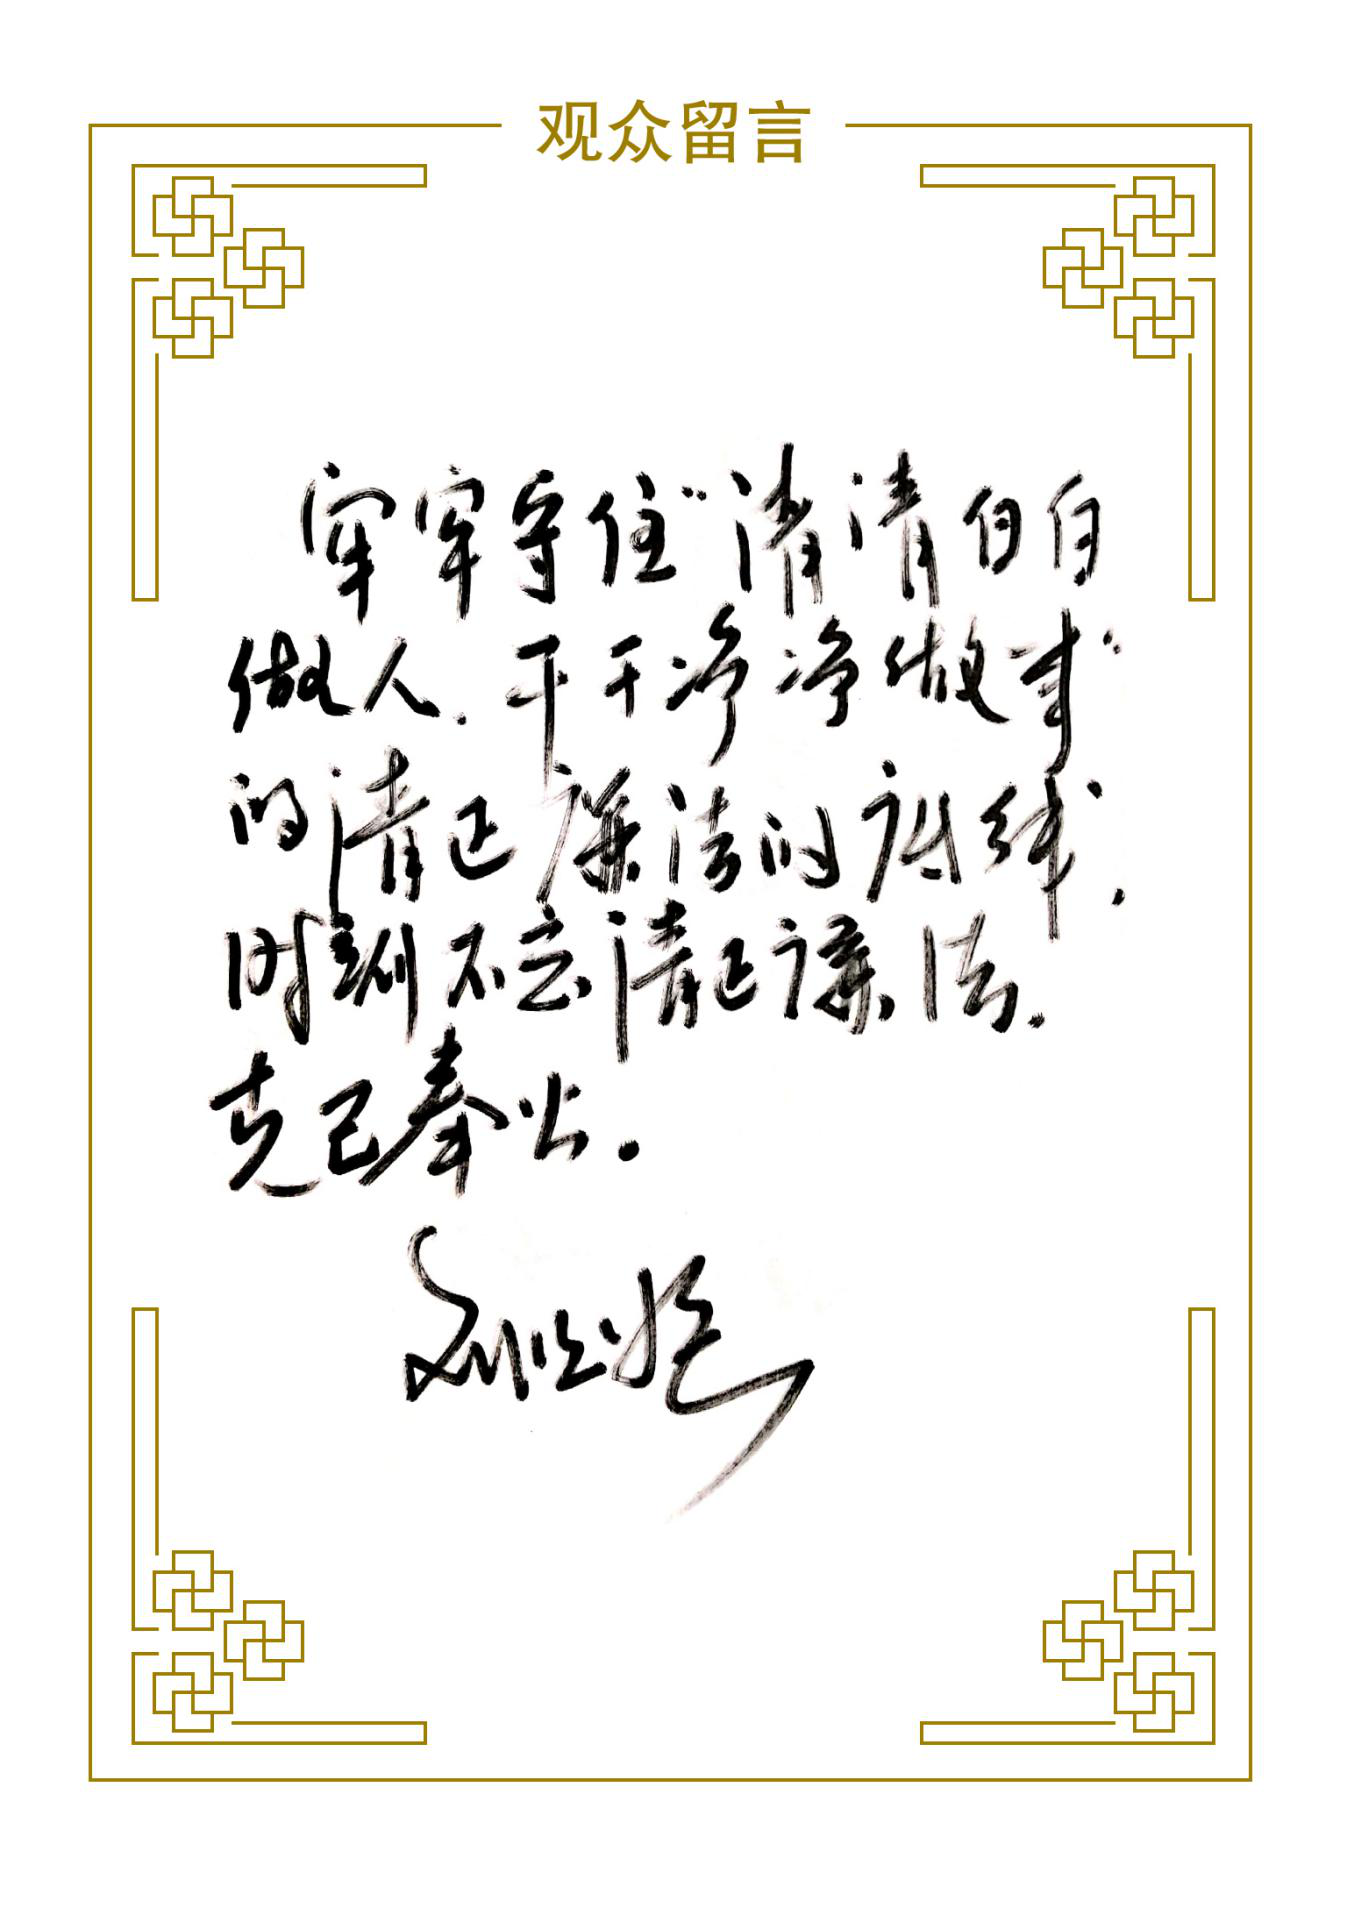 观众留言
牢牢守住“清清白白
做人、干干净净做事”
的清正廉洁的底线，
时刻不忘清正廉洁、
克己奉公。